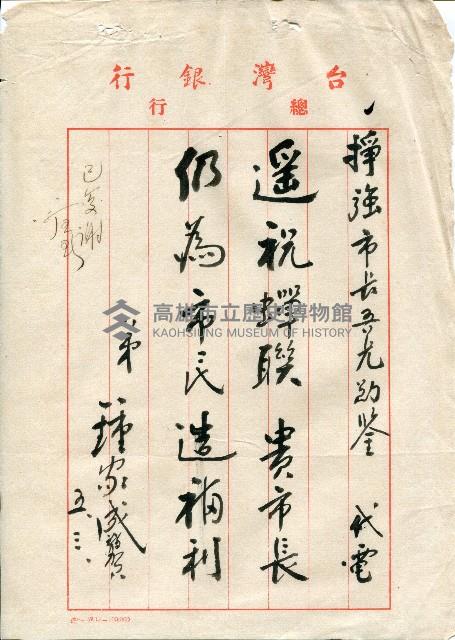 台灣銀行
總行
掙強市長吾兄勛鑒 代電
遥祝蟬聯 貴市長
仍為市民造福利
弟 鍾家成賛
五.三.
已复謝
高雄市立歷史博物館
KAOHSIUNG MUSEUM OF HISTORY